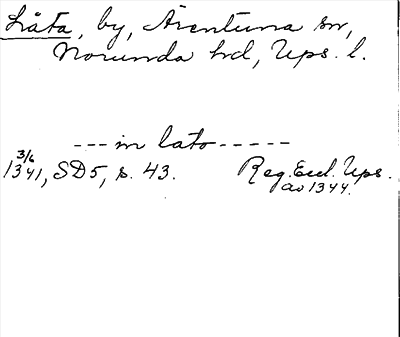 Låta, by, Ärentuna sn,
Norunda hd, Ups. l.
--- in lato -----
1341 3/6, SD5, s. 43. Reg. Eccl. Ups.
av 1344.